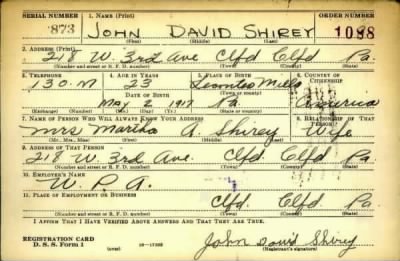 SERIAL NUMBER 1. NAME (Print) ORDER NUMBER
873 JOHN DAVID SHIREY 1088
(First) (Middle) (Last)
2. ADDRESS (Print)
218 W. 3rd Ave Clfd Clfd Pa.
(Number and street or R. F. D. number) (Town) (County) (State)
3. TELEPHONE 4. AGE IN YEARS 5. PLACE OF BIRTH 6. COUNTRY OF CITIZENSHIP
130-M 23 Mills
DATE OF BIRTH (Town or county)
May 2 1917 Pa. America
(Exchange) (Number) (Mo.) (Day) (Yr.) (State or country)
7. NAME OF PERSON WHO WILL ALWAYS KNOW YOUR ADDRESS 8. RELATIONSHIP OF THAT PERSON
Mrs Martha A. Shirey Wife
(Mr., Mrs., Miss) (First) (Middle) (Last)
9. ADDRESS OF THAT PERSON
218 W. 3rd Ave. Clfd. Clfd Pa.
(Number and street or R. F. D. number) (Town) (County) (State)
10. EMPLOYER'S NAME
W. P. A.
11. PLACE OF EMPLOYMENT OR BUSINESS
Clfd. Clfd Pa
(Number and street or R. F. D. number) (Town) (County) (State)
I AFFIRM THAT I HAVE VERIFIED ABOVE ANSWERS AND THAT THEY ARE TRUE.
REGISTRATION CARD
D. S. S. Form 1 (over) 16—17105 John David Shirey
(Registrant's signature)